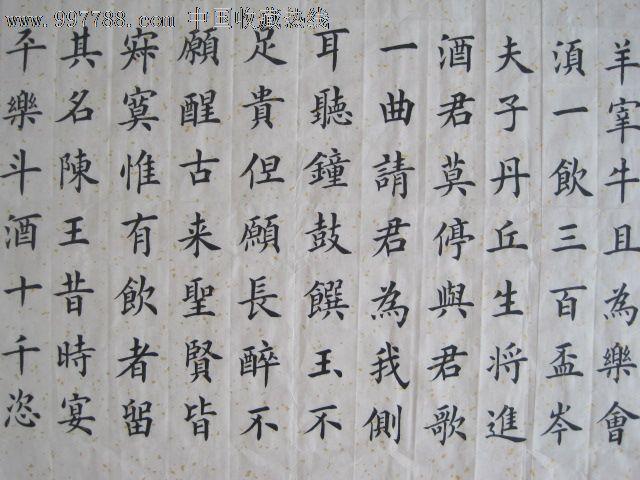 www.997788.com 中国收藏热线
羊宰牛且為樂會
湏一飲三百盃岑
夫子丹丘生将進
酒君莫停與君歌
一曲請君為我側
耳聽鐘鼓饌玉不
足貴但願長醉不
願醒古来聖賢皆
寂寞惟有飲者留
其名陳王昔時宴
平樂斗酒十千恣